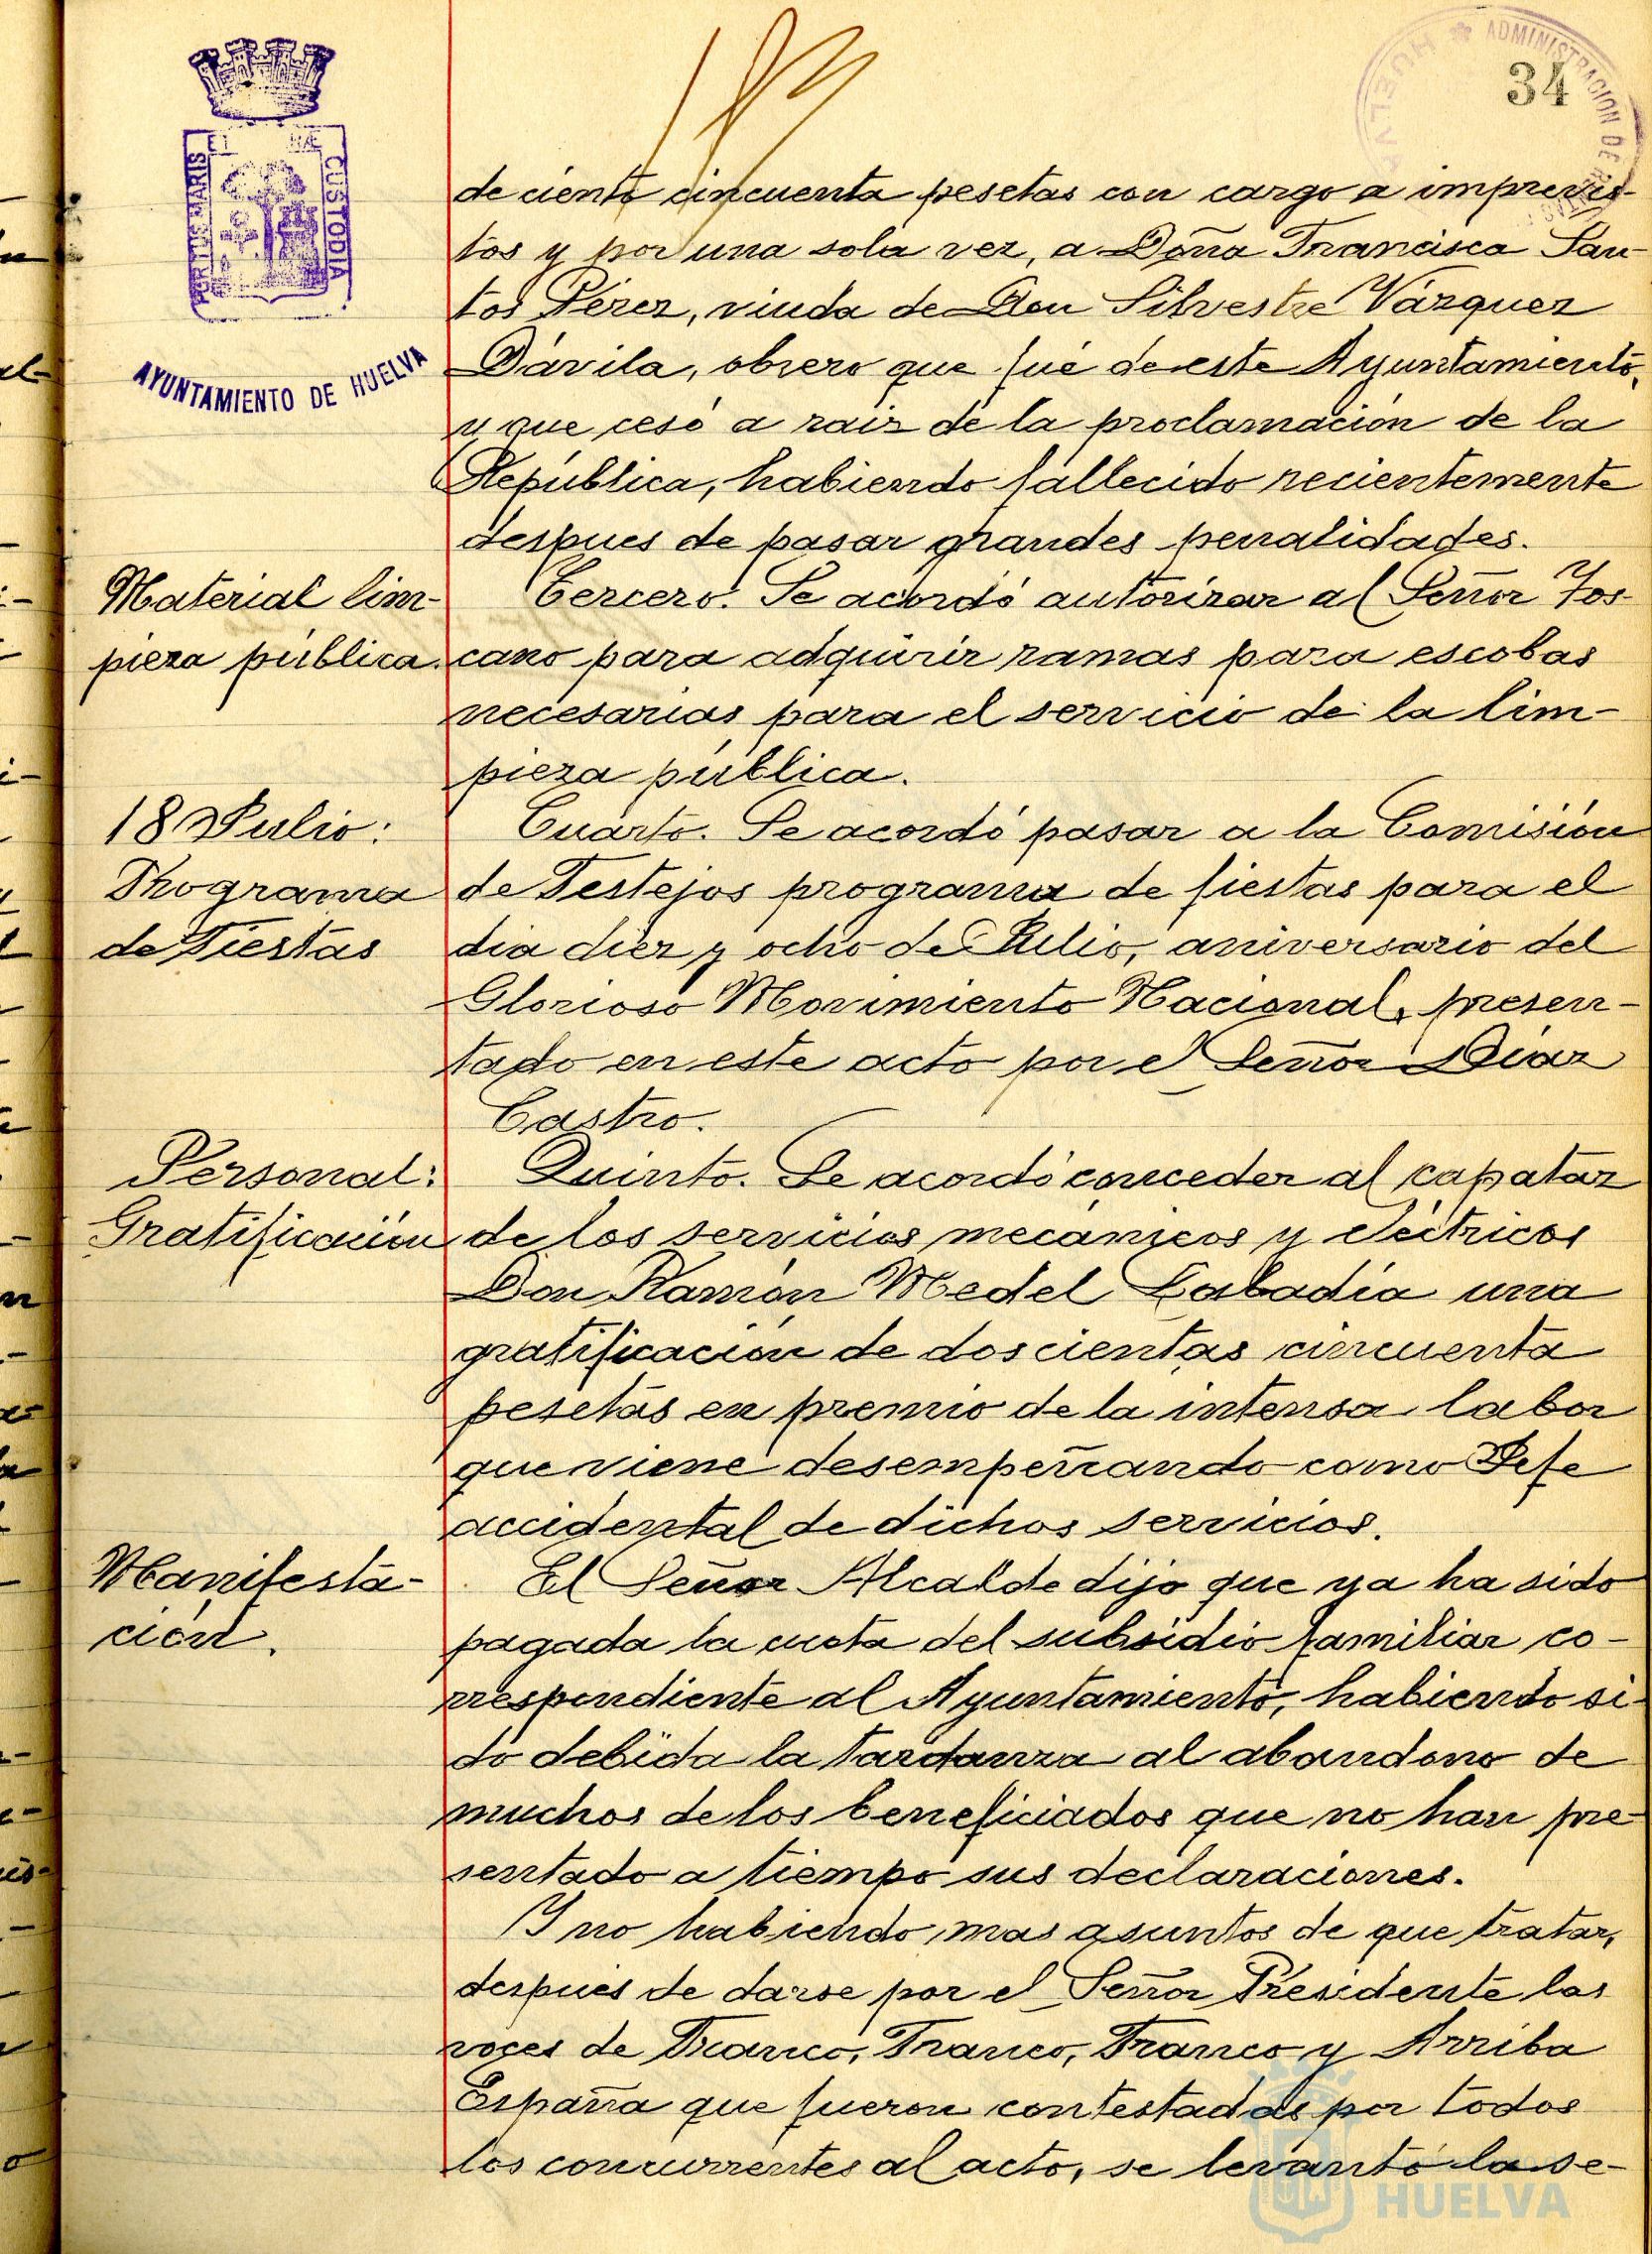 34
HUELVA
ADMINISTRACION DE
PORTUS MARIS
ET
CUSTODIA
AYUNTAMIENTO DE HUELVA
de ciento cincuenta pesetas con cargo a imprevis-
tos y por una sola vez, a Doña Francisca San-
tos Pérez, viuda de Don Silvestre Vázquez
Dávila, obrero que fué de este Ayuntamiento,
y que cesó a raiz de la proclamación de la
República, habiendo fallecido recientemente
despues de pasar grandes penalidades.
Material lim-
pieza pública.
Tercero. Se acordó autorizar al Señor Tos-
cano para adquirir ramas para escobas
necesarias para el servicio de la lim-
pieza pública.
18 Julio:
Programa
de Fiestas
Cuarto. Se acordó pasar a la Comisión
de Festejos programa de fiestas para el
dia diez y ocho de Julio, aniversario del
Glorioso Movimiento Nacional, presen-
tado en este acto por el Señor Diaz
Castro.
Personal:
Gratificación
Quinto. Se acordó conceder al capataz
de los servicios mecánicos y eléctricos
Don Ramón Medel Labadía una
gratificación de doscientas cincuenta
pesetas en premio de la intensa labor
que viene desempeñando como Jefe
accidental de dichos servicios.
Manifesta-
ción.
El Señor Alcalde dijo que ya ha sido
pagada la cuota del subsidio familiar co-
rrespondiente al Ayuntamiento, habiendo si-
do debida la tardanza al abandono de
muchos de los beneficiados que no han pre-
sentado a tiempo sus declaraciones.
Y no habiendo mas asuntos de que tratar,
despues de darse por el Señor Presidente las
voces de Franco, Franco, Franco y Arriba
España que fueron contestadas por todos
los concurrentes al acto, se levantó la se-
HUELVA